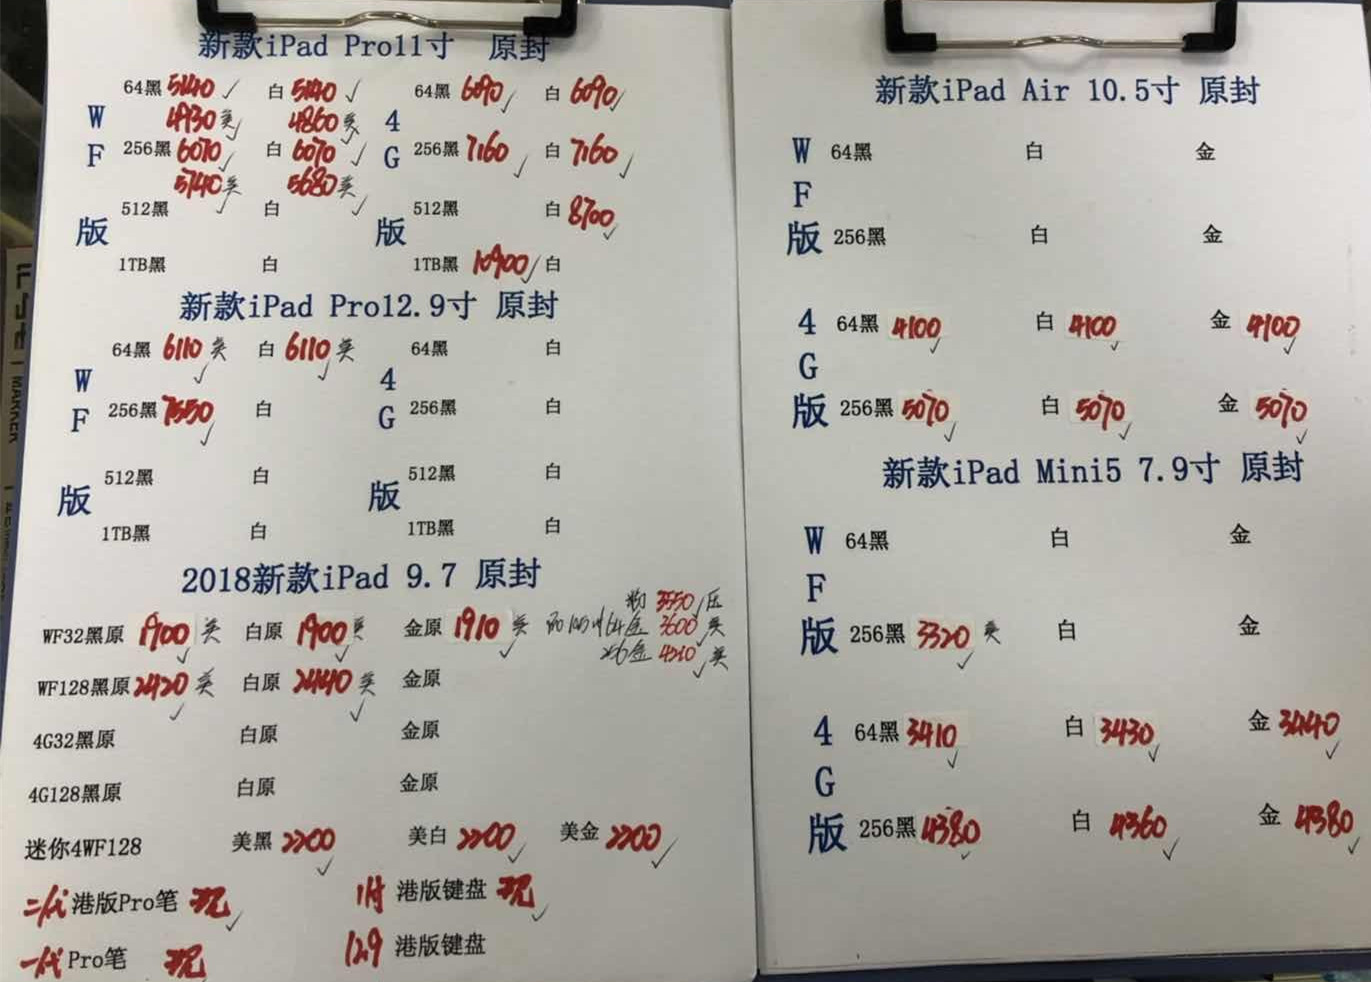 新款iPad Pro11寸 原封
WF版
64黑 5140 白 5140
4930美 4860美
256黑 6070 白 6070
5740美 5680美
512黑 白
1TB黑 白
4G版
64黑 6090 白 6090
256黑 7160 白 7160
512黑 白 8700
1TB黑 10900 白
新款iPad Pro12.9寸 原封
WF版
64黑 6110 美 白 6110 美
256黑 7550 白
512黑 白
1TB黑 白
4G版
64黑 白
256黑 白
512黑 白
1TB黑 白
2018新款iPad 9.7 原封
WF32黑原 1900 美 白原 1900 美 金原 1910 美
3550
64金 3600 美
256金 4210 美
WF128黑原 2420 美 白原 2440 美 金原
4G32黑原 白原 金原
4G128黑原 白原 金原
迷你4WF128 美黑 2200 美白 2200 美金 2200
二代 港版Pro笔 现 11寸 港版键盘 现
一代 Pro笔 现 12.9 港版键盘
新款iPad Air 10.5寸 原封
WF版
64黑 白 金
256黑 白 金
4G版
64黑 4100 白 4100 金 4100
256黑 5070 白 5070 金 5070
新款iPad Mini5 7.9寸 原封
WF版
64黑 白 金
256黑 3320 美 白 金
4G版
64黑 3410 白 3430 金 3440
256黑 4380 白 4360 金 4380
MARKER